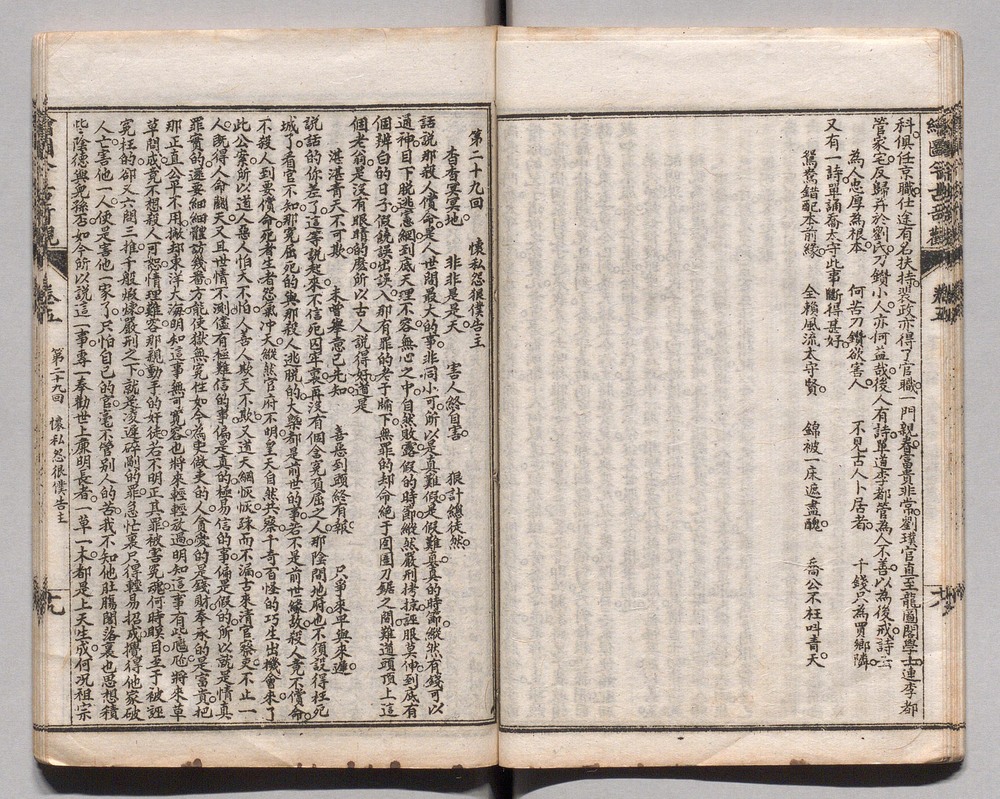 科俱任京職仕途有名扶持裴政亦得了官職一門親眷富貴非常劉璞官直至龍圖閣學士連李都
管家宅反歸并於劉氏刁鑽小人亦何益哉後人有詩單道李都管為人不善以為後戒詩云
為人忠厚為根本 何苦刁鑽欲害人 不見古人卜居者 千錢只為買鄉隣
又有一詩單誦喬太守此事斷得甚好
鴛鴦錯配本前緣 全賴風流太守賢 錦被一床遮盡醜 喬公不枉叫青天
第二十九回 懷私怨很僕告主
杳杳冥冥地 非非是是天 害人終自害 狠計總徒然
話說那殺人償命是人世間最大的事非同小可所以是真難假是假難真真的時節縱然有錢可以
通神目下脫逃憲網到底天理不容無心之中自然敗露假的時節縱然嚴刑拷掠誣服莫伸到底有
個辨白的日子假饒誤出誤入那有罪的老于牖下無罪的却命絕于囹圄刀鋸之間難道頭頂上這
個老翁是沒有眼睛的麽所以古人說得好道是
湛湛青天不可欺 未曾舉意已先知 善惡到頭終有報 只爭來早與來遲
說話的你差了這等說起來不信死囚牢裏再沒有個含冤負屈之人那陰間地府也不須設得枉死
城了看官不知那冤屈死的與那殺人逃脫的大槩都是前世的事若不是前世緣故殺人竟不償命
不殺人到要償命死者生者怨氣冲天縱然官府不明皇天自然共察千奇百怪的巧生出機會來了
此公案所以道人惡人怕天不怕人善人欺天不欺又道天網恢恢疎而不漏古來清官察吏不止一
人既得人命關天又且世情不測儘有極難信的事偏是真的極易信的事偏是假的所以就是情真
罪實的還要細細體訪幾番方能使獄無冤性如今為吏做吏的人貪愛的是錢財奉承的是富貴把
那正直公平不用撇却東洋大海明知這事無可寬容也將來輕輕放過明知這事有些尷尬將來草
草問成竟不想殺人可恕情理難容那親動手的奸徒若不明正其罪被害冤魂何時瞑目至于被誣
冤枉的卻又六問三推千般煅煉嚴刑之下就是凌遲碎剮的罪急忙裏只得輕易招成攪得他家破
人亡害他一人便是害他一家了只怕自己的官毫不管别人的苦我不知他肚腸閣落裏也思想積
些陰德與兒孫否如今所以說這一事專一奉勸世上廉明長者一草一木都是上天生成何况祖宗
卷五
第二十九回 懷私怨很僕告主
十九